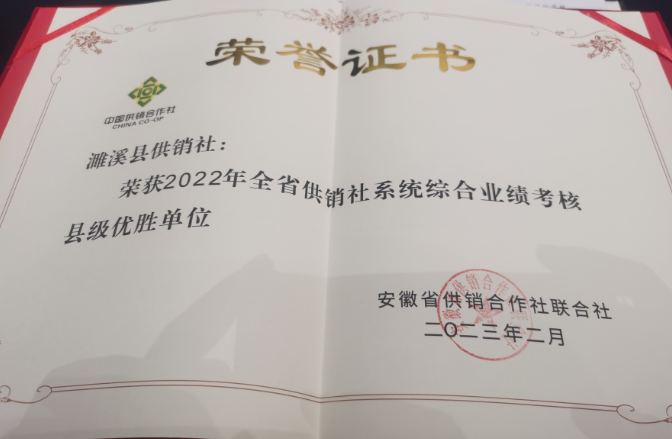 荣誉证书
中国供销合作社
CHINA CO-OP
濉溪县供销社：
荣获2022年全省供销社系统综合业绩考核
县级优胜单位
安徽省供销合作社联合社
二〇二三年二月